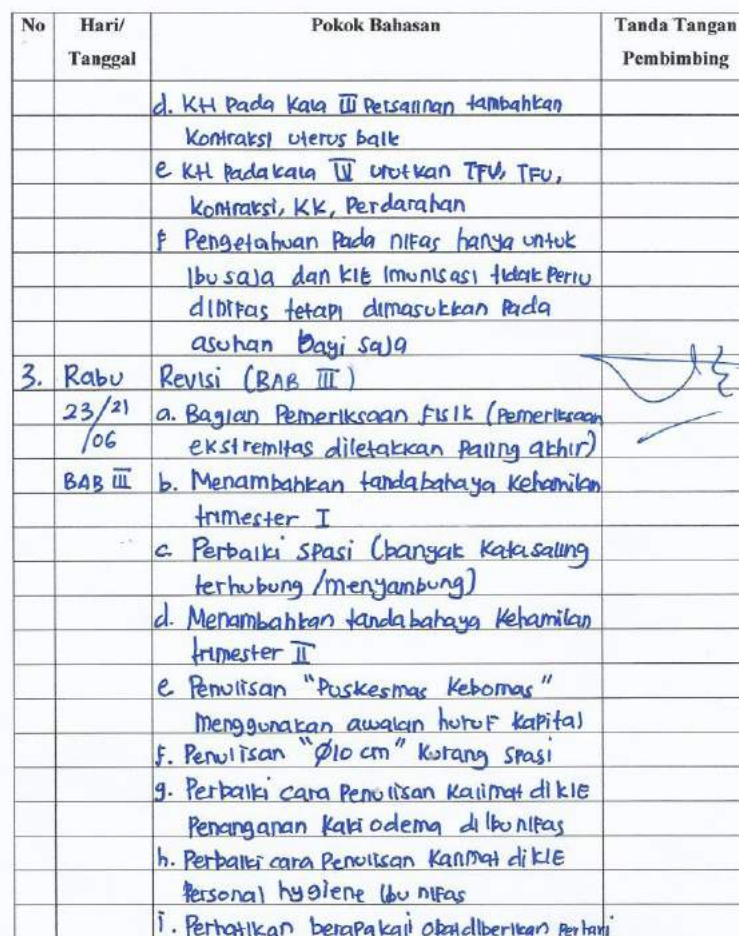 No Hari/ Tanggal Pokok Bahasan Tanda Tangan Pembimbing
d. KH Pada Kala III Persalinan tambahkan
Kontraksi uterus baik
e KH Pada kala IV urutkan TFU, TFU,
Kontraksi, KK, Perdarahan
f Pengetahuan Pada nifas hanya untuk
Ibu saja dan KIE Imunisasi tidak Perlu
dinifas tetapi dimasukkan Pada
asuhan bayi saja
3. Rabu Revisi (BAB III)
23/21 a. Bagian Pemeriksaan Fisik (Pemeriksaan
/06 ekstremitas diletakkan Paling akhir)
BAB III b. Menambahkan tanda bahaya Kehamilan
trimester I
c. Perbaiki spasi (banyak kata saling
terhubung /menyambung)
d. Menambahkan tanda bahaya Kehamilan
trimester II
e Penulisan "Puskesmas Kebomas"
menggunakan awalan huruf kapital
f. Penulisan "Ø10 cm" Kurang spasi
g. Perbaiki cara Penulisan Kalimat di KIE
Penanganan Kaki odema di Ibu nifas
h. Perbaiki cara Penulisan Kalimat di KIE
Personal hygiene Ibu nifas
i. Perhatikan berapa kali obat diberikan Perhari